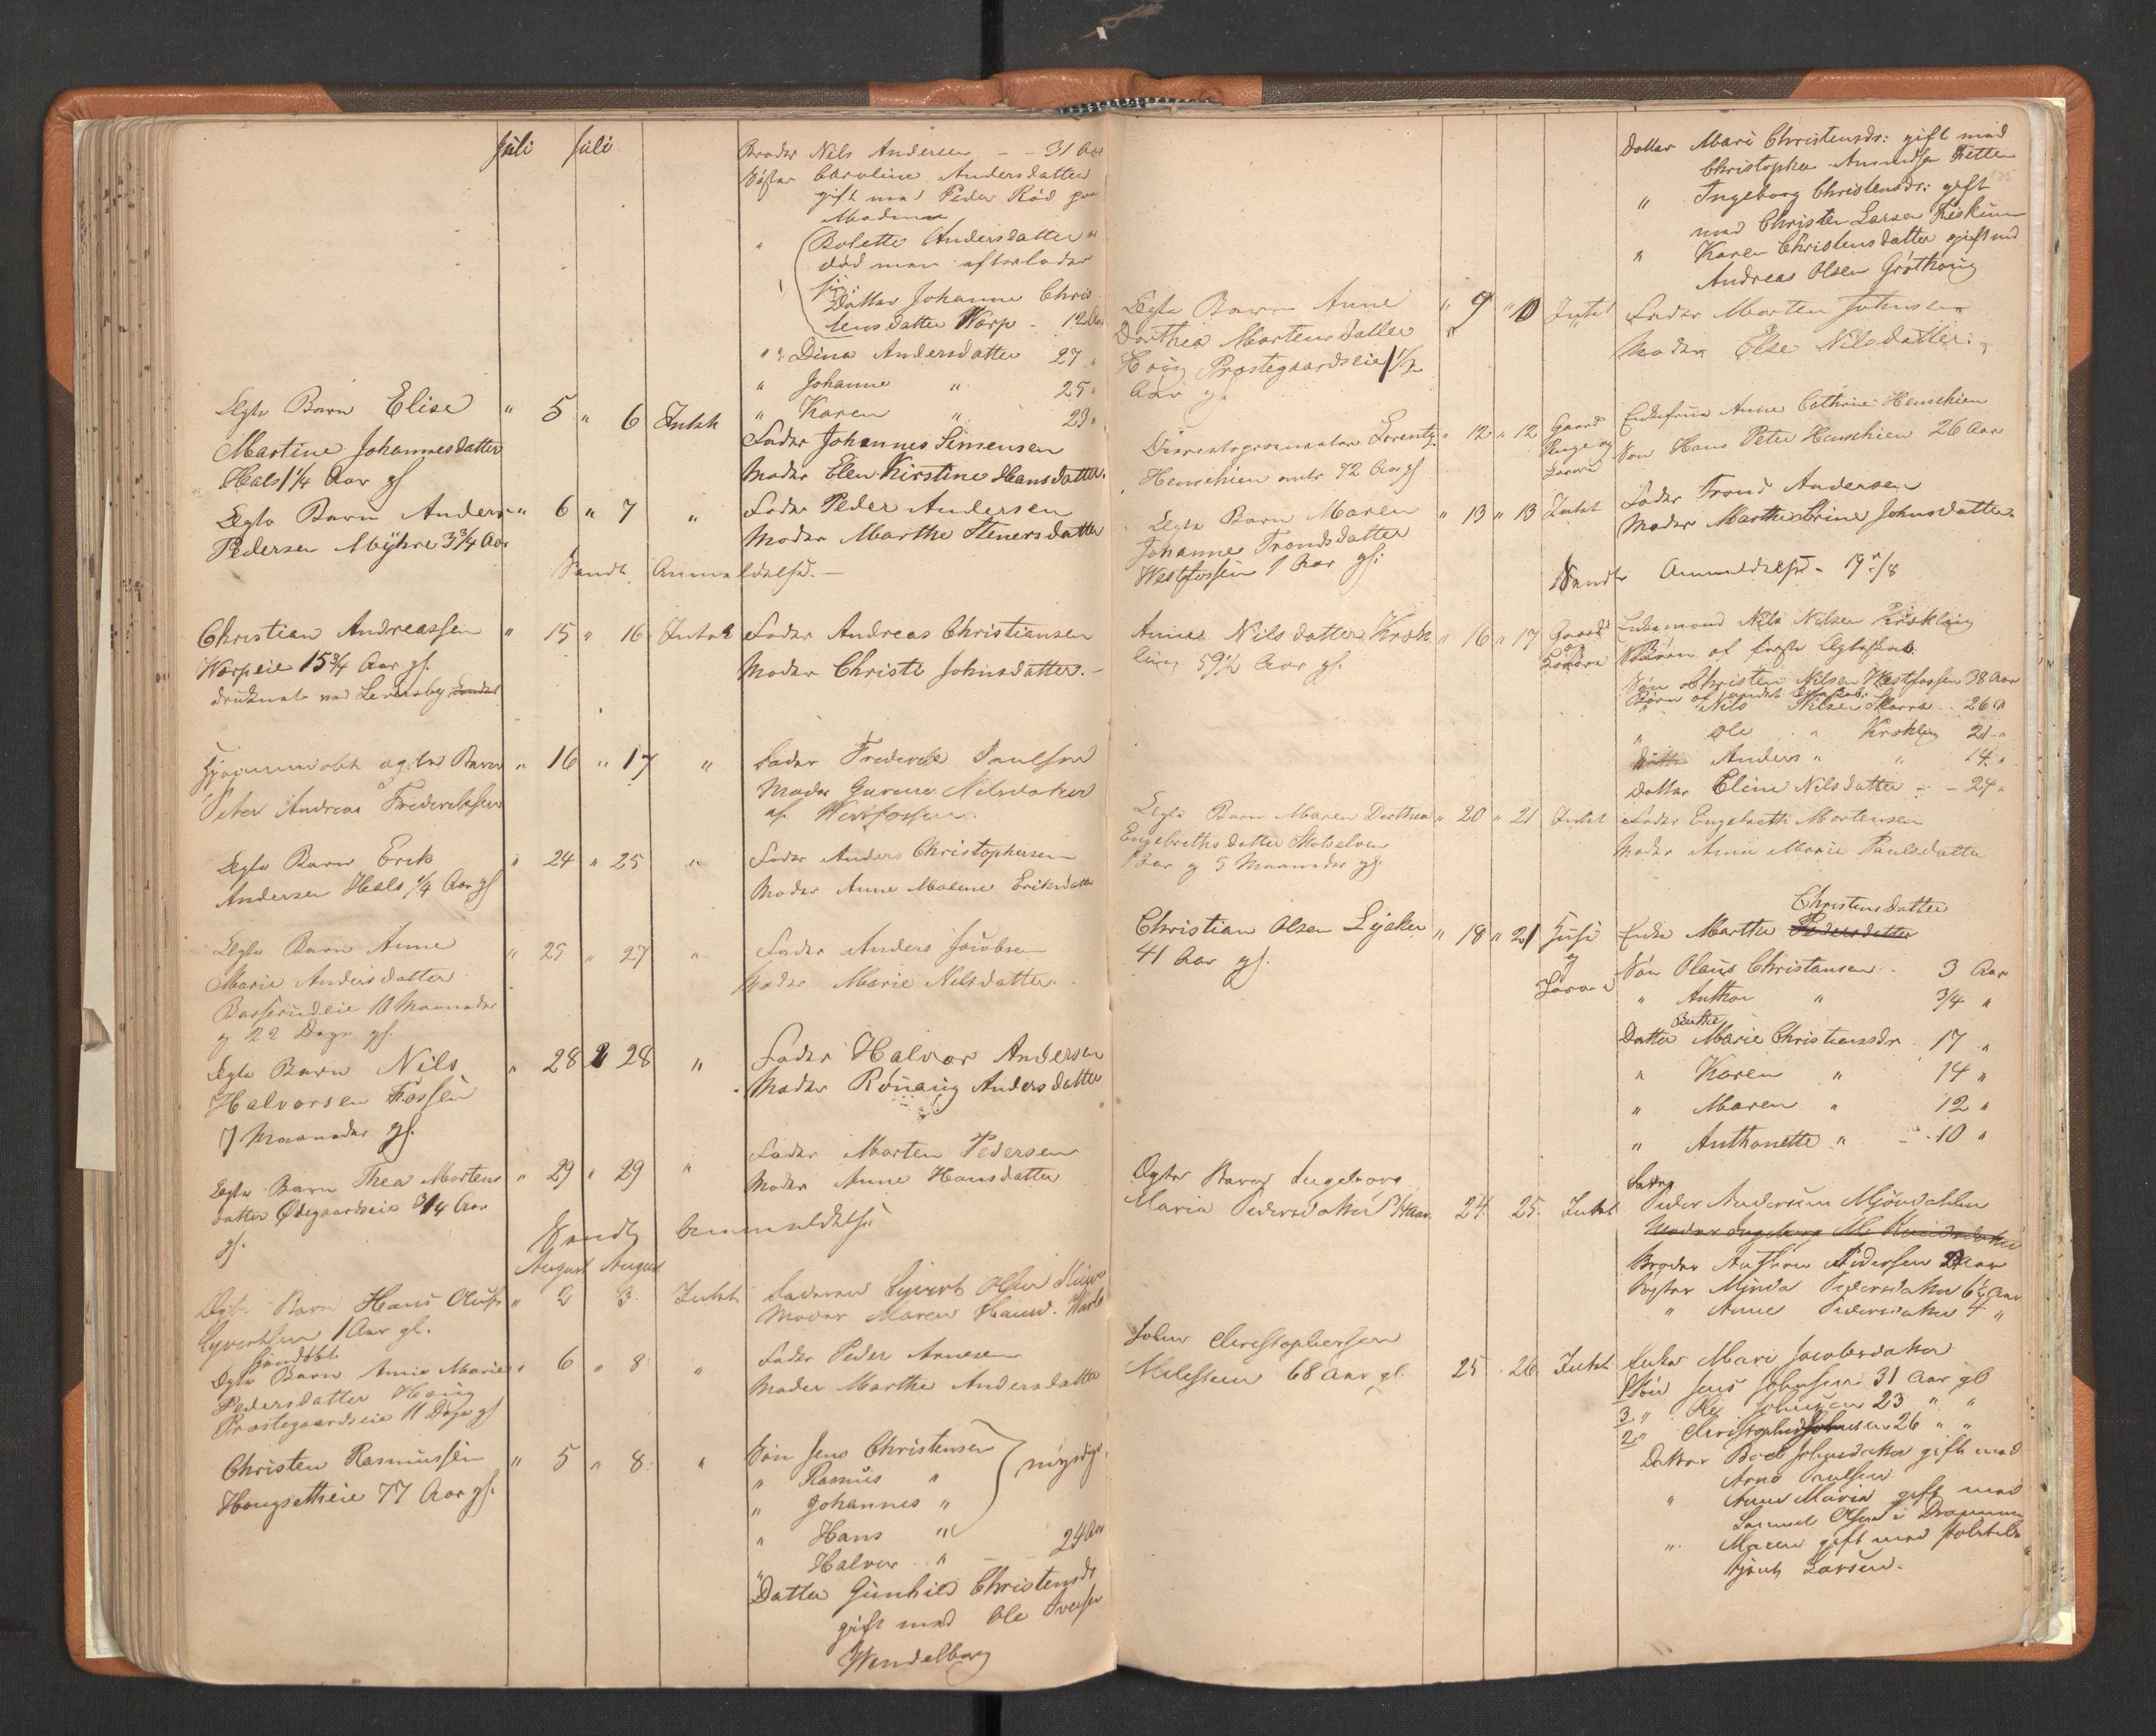 Juli Juli
Broder Nils Andersen - - 31 Aar
Søster Caroline Andersdatter
gift med Peder Rød paa
Modum
" Bolette Andersdatter
død men efterlader
sig:
Datter Johanne Chris
tensdatter Worp - 12 Aar
" Dina Andersdatter 27 "
" Johanne " 25 "
" Karen " 23 "
Ægte Barn Elise " 5 " 6 Intet Fader Johannes Simensen
Martine Johannesdatter
Hals 1 1/4 Aar gl Moder Elen Kirstine Hansdatter.
Ægte Barn Anders " 6 " 7 " Fader Peder Andersen
Pedersen Myhre 3 3/4 Aar Moder Marthe Stenersdatter
Sendt Anmeldelse. -
Christian Andreassen " 15 " 16 Intet Fader Andreas Christiansen
Worpeie 15 3/4 Aar gl. Moder Christi Johnsdatter. -
druknet ved
Hjemmedøbt ægte Barn " 16 " 17 " Fader Frederik Paulsen
Peter Andreas Frederiksen Moder Gurine Nilsdatter
af Westfossen
Ægte Barn Erik " 24 " 25 " Fader Anders Christophersen
Andersen Hals 1/4 Aar gl Moder Anne Malene Eriksdatter
Ægte Barn Anne " 25 " 27 " Fader Anders Jacobsen
Marie Andersdatter Moder Marie Nilsdatter.
Basserudeie 10 Maaneder
og 22 Dage gl.
Ægte Barn Nils " 28 " 28 " Fader Halvor Andersen
Halvorsen Fossen Moder Rønaug Andersdatter
7 Maaneder gl.
Ægte Barn Thea Mortens " 29 " 29 " Fader Morten Pedersen
datter Ødegaardseie 3/4 Aar Moder Anne Hansdatter
gl.
Sendt Anmeldelse
August August
Ægte Barn Hans Oluf " 2 3. Intet Faderen Syvert Olsen
Syvertsen 1 Aar gl. Moder Maren
Hjemdøbt
Ægte Barn Anne Marie " 6 " 8 " Fader Peder Arnesen
Pedersdatter Haug Moder Marthe Andersdatter
Præstegaardseie 11 Dage gl
Christen Rasmussen " 5 " 8 " Søn Jens Christensen
Hougsetheie 77 Aar gl. " Rasmus " myndige
" Johannes "
" Hans "
" Halvor " - 24 Aar
Datter Gunhild Christensdr
gift med Ole Iversen
Wendelborg
Datter Mari Christensdr: gift med
Christopher Amundsen
" Ingeborg Christensdr: gift
med Christen Larsen Fiskum
" Karen Christensdatter gift med
Andreas Olsen
Ægte Barn Anne " 9 " 10 Intet Fader Morten Johnsen
Dorthea Mortensdatter Moder Else Nilsdatter.
Houg Præstegaardseie 1 1/2
Aar gl.
Lorentz " 12 " 12 Gaard Enkefrue Anne Cathrine Henschien
Henschien 72 Aar gl Penge og Løsøre Søn Hans Peter Henschien 26 Aar
Ægte Barn Maren " 13 " 13 Intet Fader Trond Andersen
Johanne Trondsdatter Moder Marthe Trine Johnsdatter.
Westfossen 1 Aar gl.
Sendt Anmeldelse - 19/8
Anne Nilsdatter Krok " 16 " 17 Gaard Enkemand Nils Nilsen Krokling
ling 59 1/2 Aar gl. og Løsøre Børn af første Ægteskab
Søn Christen Nilsen Westfossen 38 Aar
Børn af andet Ægteskab:
" Nils Nilsen 26 "
" Ole " Krokling 21 "
Anders " " 14 "
Datter Eline Nilsdatter - - 24 "
Ægte Barn Maren Dorthea " 20 " 21 Intet Fader Engebreth Mortensen
Engebrethsdatter Moder Anne Marie Paulsdatter
1 Aar og 5 Maaneder gl.
Christensdatter
Christian Olsen Lyeker " 18 " 21 Huse Enke Marthe Pedersdatter
41 Aar gl. og Løsøre Søn Olaus Christiansen 3 Aar
" Anthon " 3/4 "
Berthe
Datter Marie Christiansdr. 17 "
" Karen " 14 "
" Maren " 12 "
" Anthonette " - 10 "
Ægte Barn Ingeborg Fader
Maria Pedersdatter 24 25. Intet Peder Andersen Mjøndahlen
Broder Anthon Pedersen
Søster Mynda Pedersdatter 6 1/2 Aar
" Anne Pedersdatter 4 "
John Christophersen
Milesteen 68 Aar gl. 25 26. Intet Enke Mari Jacobsdatter
1 Søn Jens Johnsen 31 Aar gl
3 " Ole Johnsen 23 " "
2 " Christopher Johnsen 26 " "
Datter Johnsdatter gift med
Arne Paulsen
" Anne Maria gift med
Samuel Olsen i Drammen
" Maren gift med
Larsen.